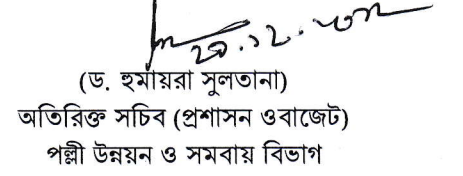 (ড. হুমায়রা সুলতানা)
অতিরিক্ত সচিব (প্রশাসন ওবাজেট)
পল্লী উন্নয়ন ও সমবায় বিভাগ